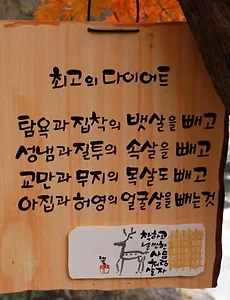 최고의 다이어트
탐욕과 집착의 뱃살을 빼고
성냄과 질투의 속살을 빼고
교만과 무지의 목살도 빼고
아집과 허영의 얼굴살을 빼는 것
착하고
날씬한
사슴
살자